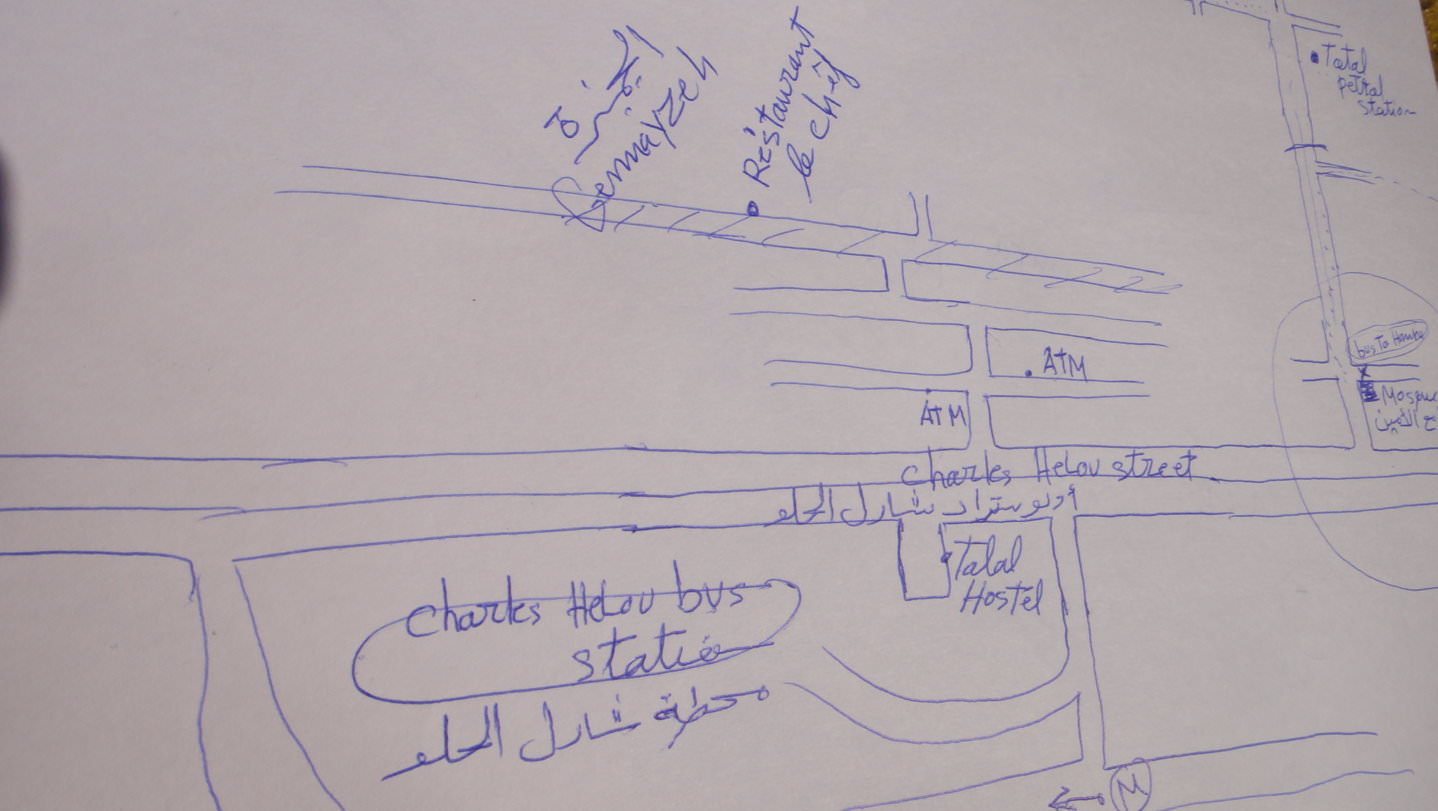 الجميزة
Gemayzeh
Réstaurant
le chéf
Total
petral
station
bus To Hamra
Mosque
الأمين
ATM
ATM
Charles Helou street
أوتوستراد شارل الحلو
Talal
Hostel
Charles Helou bus
station
محطة شارل الحلو
M